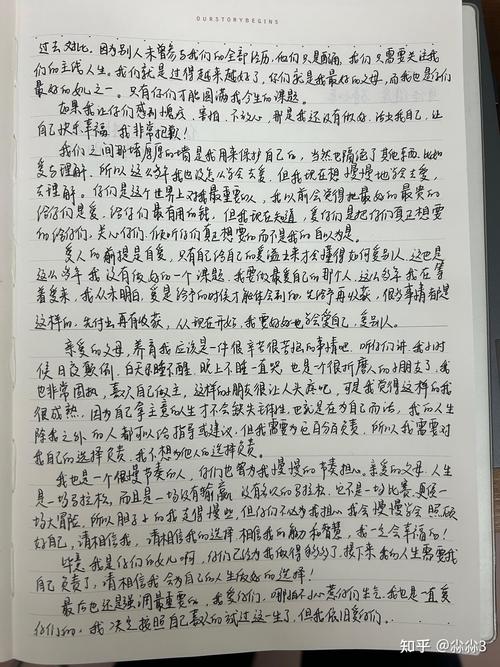 OURSTORYBEGINS
过去对比，因为别人未曾参与我们的全部经历，他们只是配角，我们只需要关注我
们的主线人生。我们就是过得越来越好了，你们就是我最好的父母，而我也是你们
最好的女儿之一。只有你们才能圆满我今生的课题。
如果我让你们感到愧疚、害怕、不放心，那是我还没有做好，活出我自己，让
自己快乐幸福，我非常抱歉！
我们之间那堵厚厚的墙是我用来保护自己的，当然也隔绝了其他东西，比如
爱与理解。所以这么多年我也没怎么学会去爱，但我现在想慢慢地学会去爱，
去理解。你们是这个世界上对我最重要的人，我以前会觉得把最好的最贵的
给你们是爱，给你们最有用的钱，但我现在知道，爱你们是把你们真正想要
的给你们，关心你们，倾听你们真正想要的而不是我的自以为是。
爱人的前提是自爱，只有自己给自己的爱溢出来才会懂得如何爱别人，这也是
这么多年我没有做好的一个课题，我要做最爱自己的那个人，这么多年我在等
着爱来，我从未明白，爱是给予的时候才能体会到的，先给予再收获，很多事情都是
这样的，先付出再有收获，从现在开始，我要好好地学会爱自己，爱别人。
亲爱的父母，养育我应该是一件很辛苦很苦恼的事情吧，听你们讲，我小时
候日夜颠倒，白天睡不醒，晚上不睡一直哭，也是个很折磨人的小朋友了，我
也非常固执，喜欢自己做主，这样的小朋友很让人头疼吧，可是我觉得这样的我
很成熟，因为自己拿主意的人生才不会缺失主体性，也就是在为自己而活，我的人生
除我之外的人都可以给指导或建议，但我需要为它百分百负责，所以我需要对
我自己的选择负责，我不想为他人的选择负责。
我也是一个慢节奏的人，你们也曾为我慢慢的节奏担心，亲爱的父母，人生
是一场马拉松，而且是一场没有输赢，没有名次的马拉松，它不是一场比赛，更像一
场大冒险，所以胆子小的我走得慢些，但你们不必为我担心，我会慢慢学会照顾
好自己，请相信我，请相信我的选择，相信我的能力和智慧，我一定会幸福的！
毕竟我是你们的女儿啊，你们已经为我做得够多了，接下来我的人生需要我
自己负责了，请相信我会为自己的人生做好的选择！
最后也还是强调最重要的，我爱你们，哪怕不小心惹你们生气，我也是一直爱
你们的，我决定按照自己喜欢的试过这一生了，但我依旧爱你们。
知乎 @尛尛3